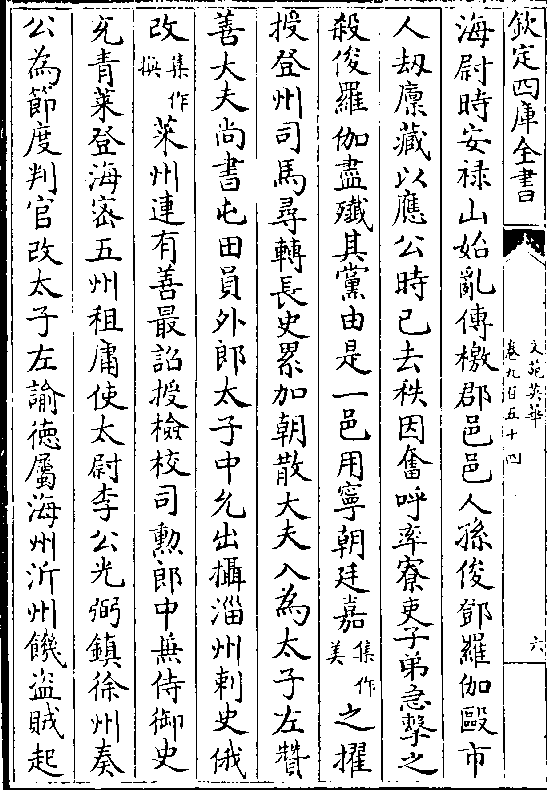 欽定四庫全書
文苑英華
卷九百五十四
六
海尉時安禄山始亂傳檄郡邑邑人孫俊鄧羅伽毆市
人刼廪藏以應公時已去秩因奮呼率寮吏子弟急擊之
殺俊羅伽盡殱其黨由是一邑用寧朝廷嘉集作美之擢
授登州司馬尋轉長史累加朝散大夫入為太子左贊
善大夫尚書屯田員外郎太子中允出攝淄州刺史俄
改集作換萊州連有善最詔授檢校司勲郎中無侍御史
充青萊登海宻五州租庸使太尉李公光弼鎮徐州奏
公為節度判官改太子左諭徳屬海州沂州饑盜賊起